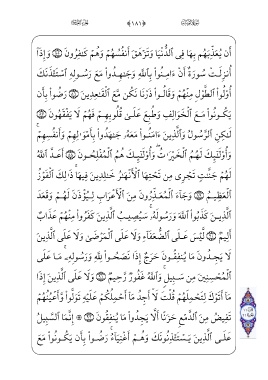 ﴿١٨١﴾
أَن يُعَذِّبَهُم بِهَا فِي الدُّنْيَا وَتَزْهَقَ أَنفُسُهُمْ وَهُمْ كَافِرُونَ ۝ وَإِذَا
أُنزِلَتْ سُورَةٌ أَنْ ءَامِنُوا بِاللَّهِ وَجَاهِدُوا مَعَ رَسُولِهِ اسْتَئْذَنَكَ
أُولُوا الطَّوْلِ مِنْهُمْ وَقَالُوا ذَرْنَا نَكُن مَّعَ الْقَاعِدِينَ ۝ رَضُوا بِأَن
يَكُونُوا مَعَ الْخَوَالِفِ وَطُبِعَ عَلَىٰ قُلُوبِهِمْ فَهُمْ لَا يَفْقَهُونَ ۝
لَٰكِنِ الرَّسُولُ وَالَّذِينَ ءَامَنُوا مَعَهُ جَاهَدُوا بِأَمْوَالِهِمْ وَأَنفُسِهِمْ
وَأُولَٰئِكَ لَهُمُ الْخَيْرَاتُ وَأُولَٰئِكَ هُمُ الْمُفْلِحُونَ ۝ أَعَدَّ اللَّهُ
لَهُمْ جَنَّاتٍ تَجْرِي مِن تَحْتِهَا الْأَنْهَارُ خَالِدِينَ فِيهَا ذَٰلِكَ الْفَوْزُ
الْعَظِيمُ ۝ وَجَاءَ الْمُعَذِّرُونَ مِنَ الْأَعْرَابِ لِيُؤْذَنَ لَهُمْ وَقَعَدَ
الَّذِينَ كَذَبُوا اللَّهَ وَرَسُولَهُ سَيُصِيبُ الَّذِينَ كَفَرُوا مِنْهُمْ عَذَابٌ
أَلِيمٌ ۝ لَّيْسَ عَلَى الضُّعَفَاءِ وَلَا عَلَى الْمَرْضَىٰ وَلَا عَلَى الَّذِينَ
لَا يَجِدُونَ مَا يُنفِقُونَ حَرَجٌ إِذَا نَصَحُوا لِلَّهِ وَرَسُولِهِ مَا عَلَى
الْمُحْسِنِينَ مِن سَبِيلٍ وَاللَّهُ غَفُورٌ رَّحِيمٌ ۝ وَلَا عَلَى الَّذِينَ إِذَا
مَا أَتَوْكَ لِتَحْمِلَهُمْ قُلْتَ لَا أَجِدُ مَا أَحْمِلُكُمْ عَلَيْهِ تَوَلَّوا وَّأَعْيُنُهُمْ
تَفِيضُ مِنَ الدَّمْعِ حَزَنًا أَلَّا يَجِدُوا مَا يُنفِقُونَ ۝ ۞ إِنَّمَا السَّبِيلُ
عَلَى الَّذِينَ يَسْتَئْذِنُونَكَ وَهُمْ أَغْنِيَاءُ رَضُوا بِأَن يَكُونُوا مَعَ